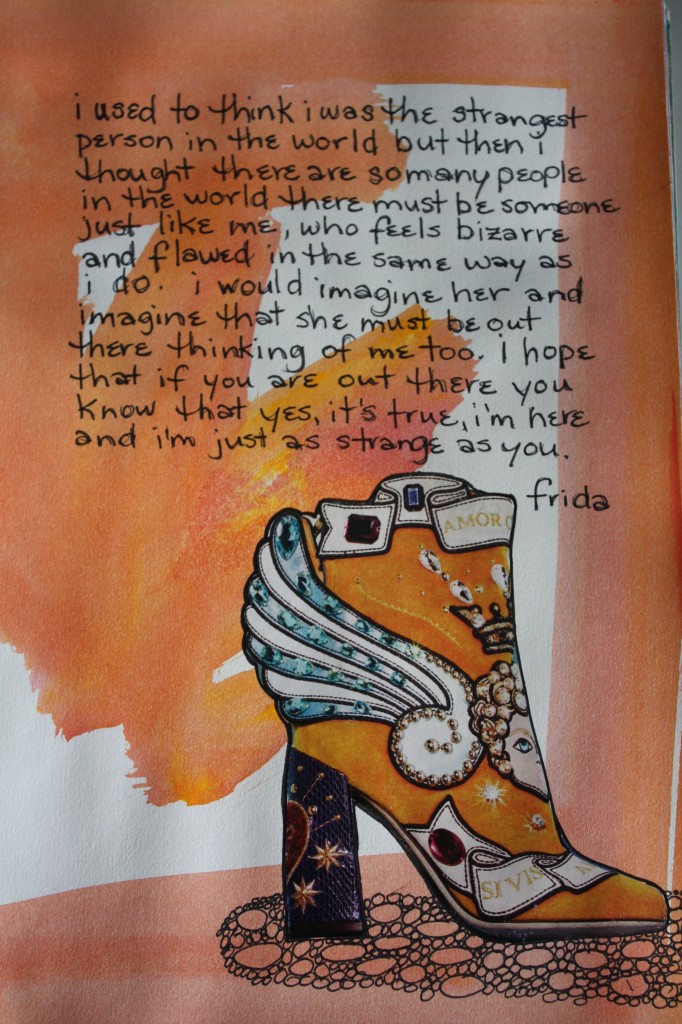 i used to think i was the strangest
person in the world but then i
thought there are so many people
in the world there must be someone
just like me, who feels bizarre
and flawed in the same way as
i do. i would imagine her and
imagine that she must be out
there thinking of me too. i hope
that if you are out there you
know that yes, it's true, i'm here
and i'm just as strange as you.
frida
AMOR
SI VIS